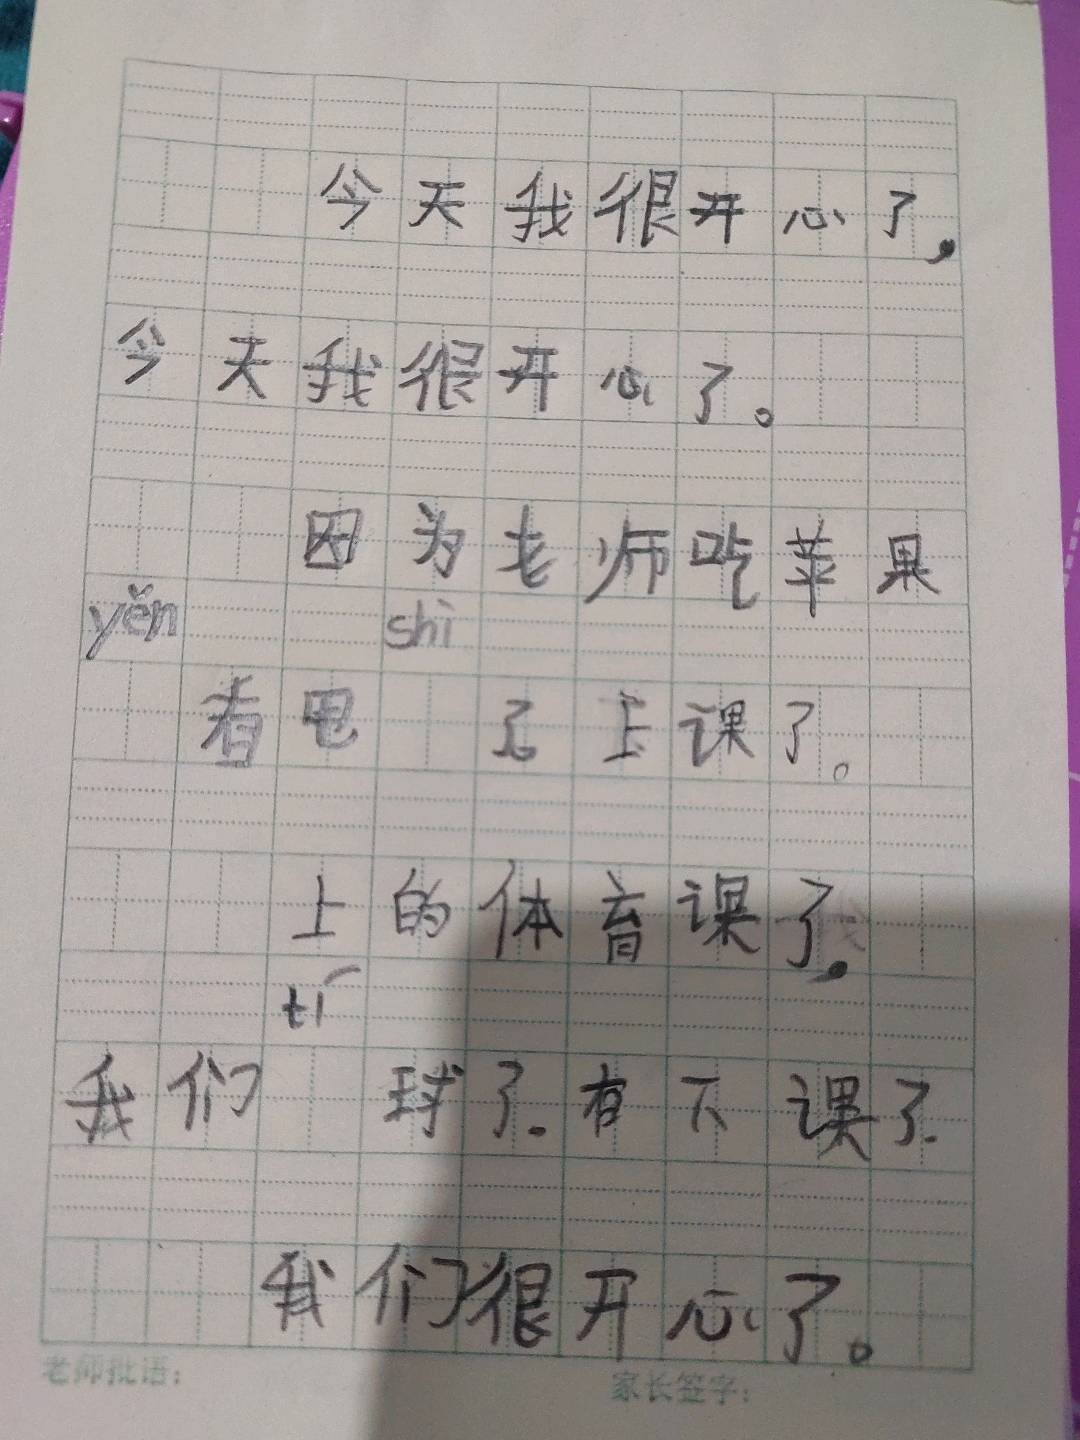 今天我很开心了，
今天我很开心了。
因为老师吃苹果
yěn shì
看电 了上课了。
上的体育课了。
tí
我们 球了.有下课了.
我们很开心了。
老师批语：
家长签字：